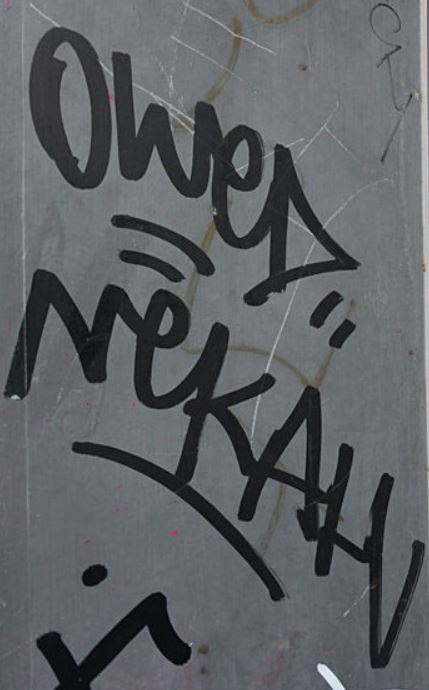 OWeD
NeKAH